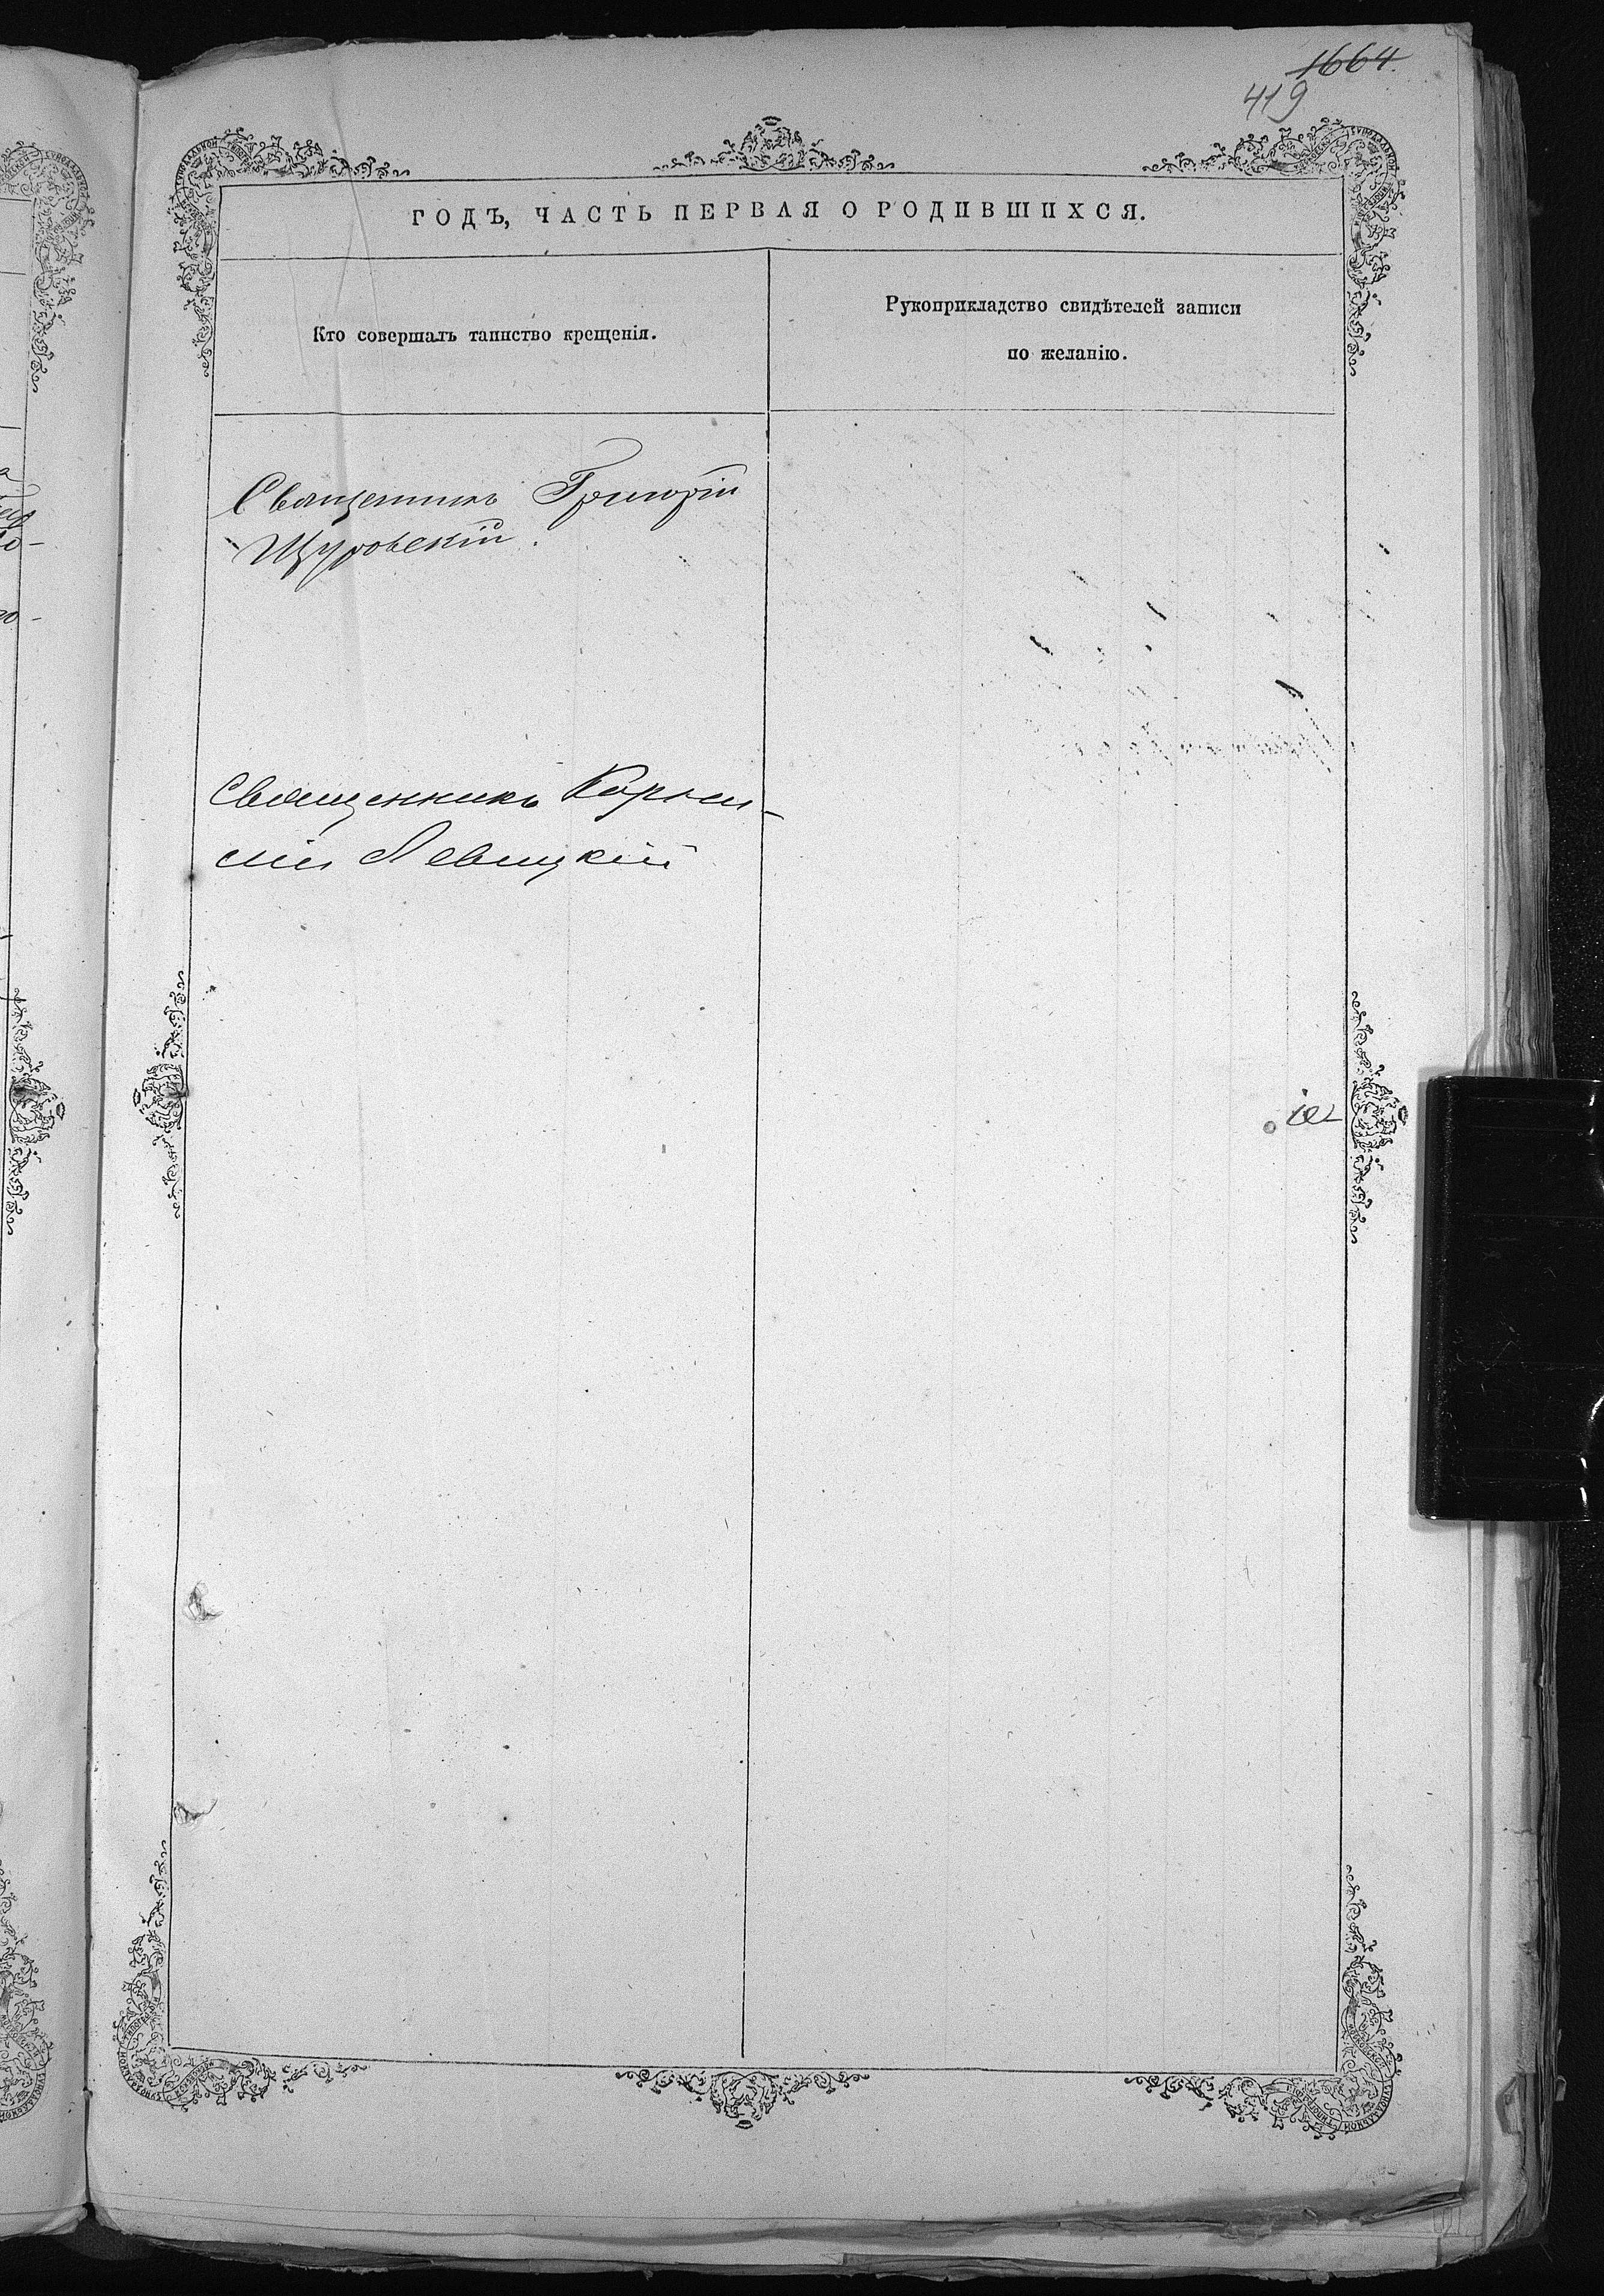 1664.
419
ГОДЪ, ЧАСТЬ ПЕРВАЯ О РОДИВШИХСЯ.
Кто совершалъ таинство крещенія.
Рукоприкладство свидѣтелей записи
по желанію.
Священникъ Григорій
Щуровскій.
Священникъ Корни-
лій Левицкій